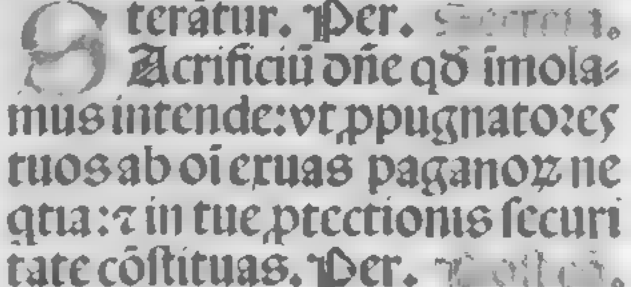 terātur. Per. Secreta.
SAcrificiū dn̄e qd̄ īmola⸗
mus intende: vt ꝓpugnatoꝛes
tuos ab oī eruas paganoꝝ ne
qtia: ⁊ in tue ꝓtectionis ſecuri
tate cōſtituas. Per.